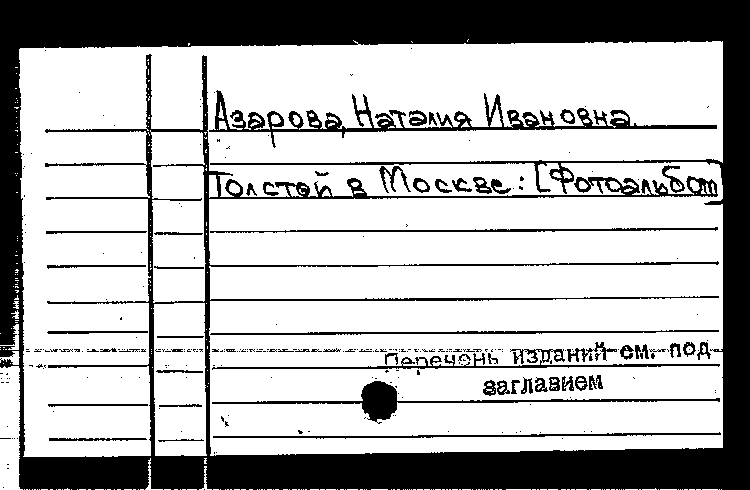 Азарова, Наталия Ивановна.
Толстой в Москве: [Фотоальбом]
Перечень изданий см. под
заглавием